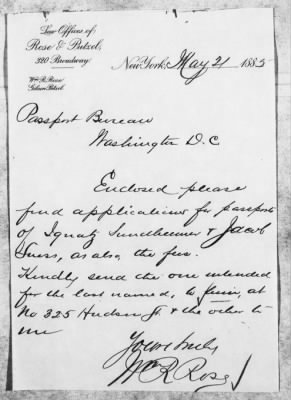 Law Offices of
Rose & Putzel,
320 Broadway.
New York, May 21 1885
Wm. R. Rose
Gibson Putzel
Passport Bureau
Washington D.C
Enclosed please
find applications for passports
of Ignatz Sundheimer & Jacob
as also, the fees.
Kindly send the one intended
for the last named, to him, at
No 325 Hudson St & the other to
me
Yours truly
Wm R Rose